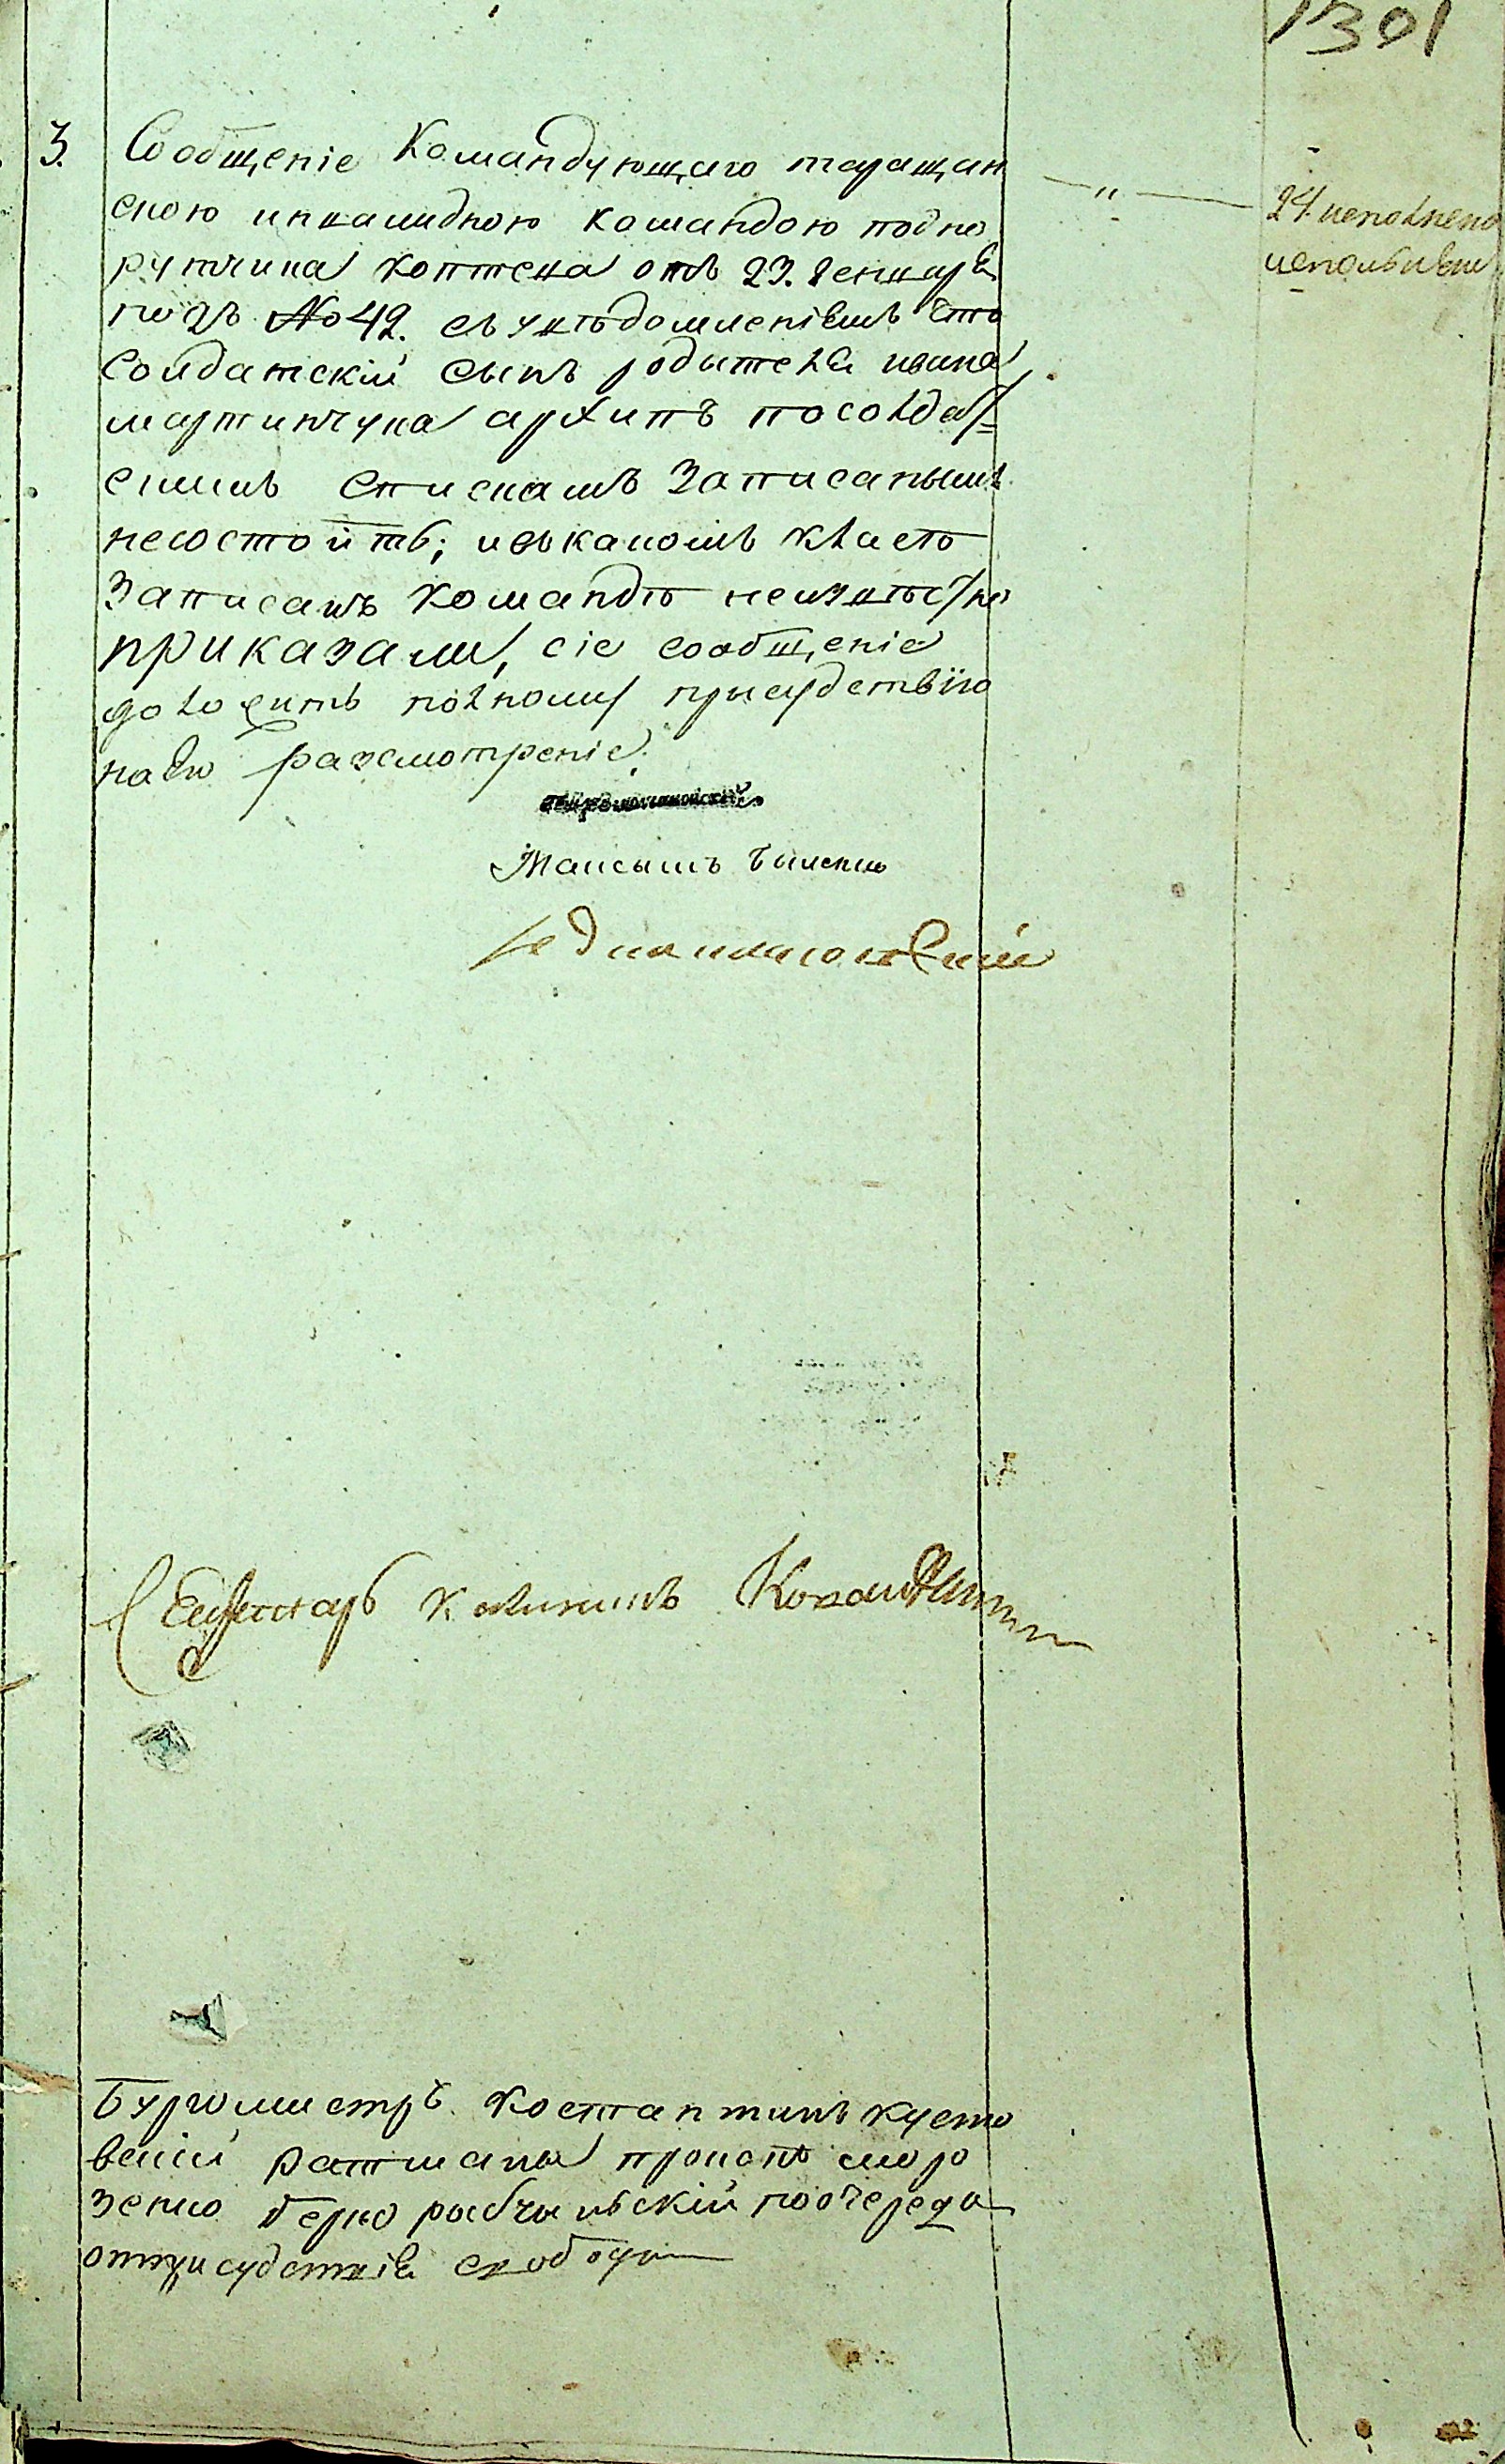 1301
3. Сообщеніе Командующаго таращан
скою инвалидною командою подпо
рутчика коптева отъ 23. Генваря
подъ № 42. съ уведомленіемъ что
солдатскій сынъ родытеля ивана
мартинчука архипъ по солдат=
скимъ спискамъ записанымъ
несостоитъ; и въ какомъ класъ
записанъ командѣ неизвѣстно
приказали, сіе сообщеніе
доложить полному прысудствiю
на Ея разсмотреніе.
— " — 24. исполнено
Максымъ быленко
Секретарь калиникъ
Бургомистръ. костантинъ кусто
вскій ратманы прокопъ моро
зенко Терно рабчынскій по очереды
отприсудствія свободны